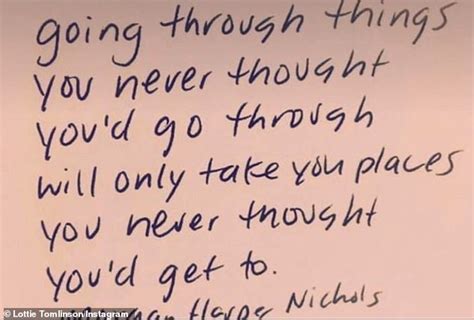 going through things
you never thought
you'd go through
will only take you places
you never thought
you'd get to.
Harper Nichols
© Lottie Tomlinson/Instagram